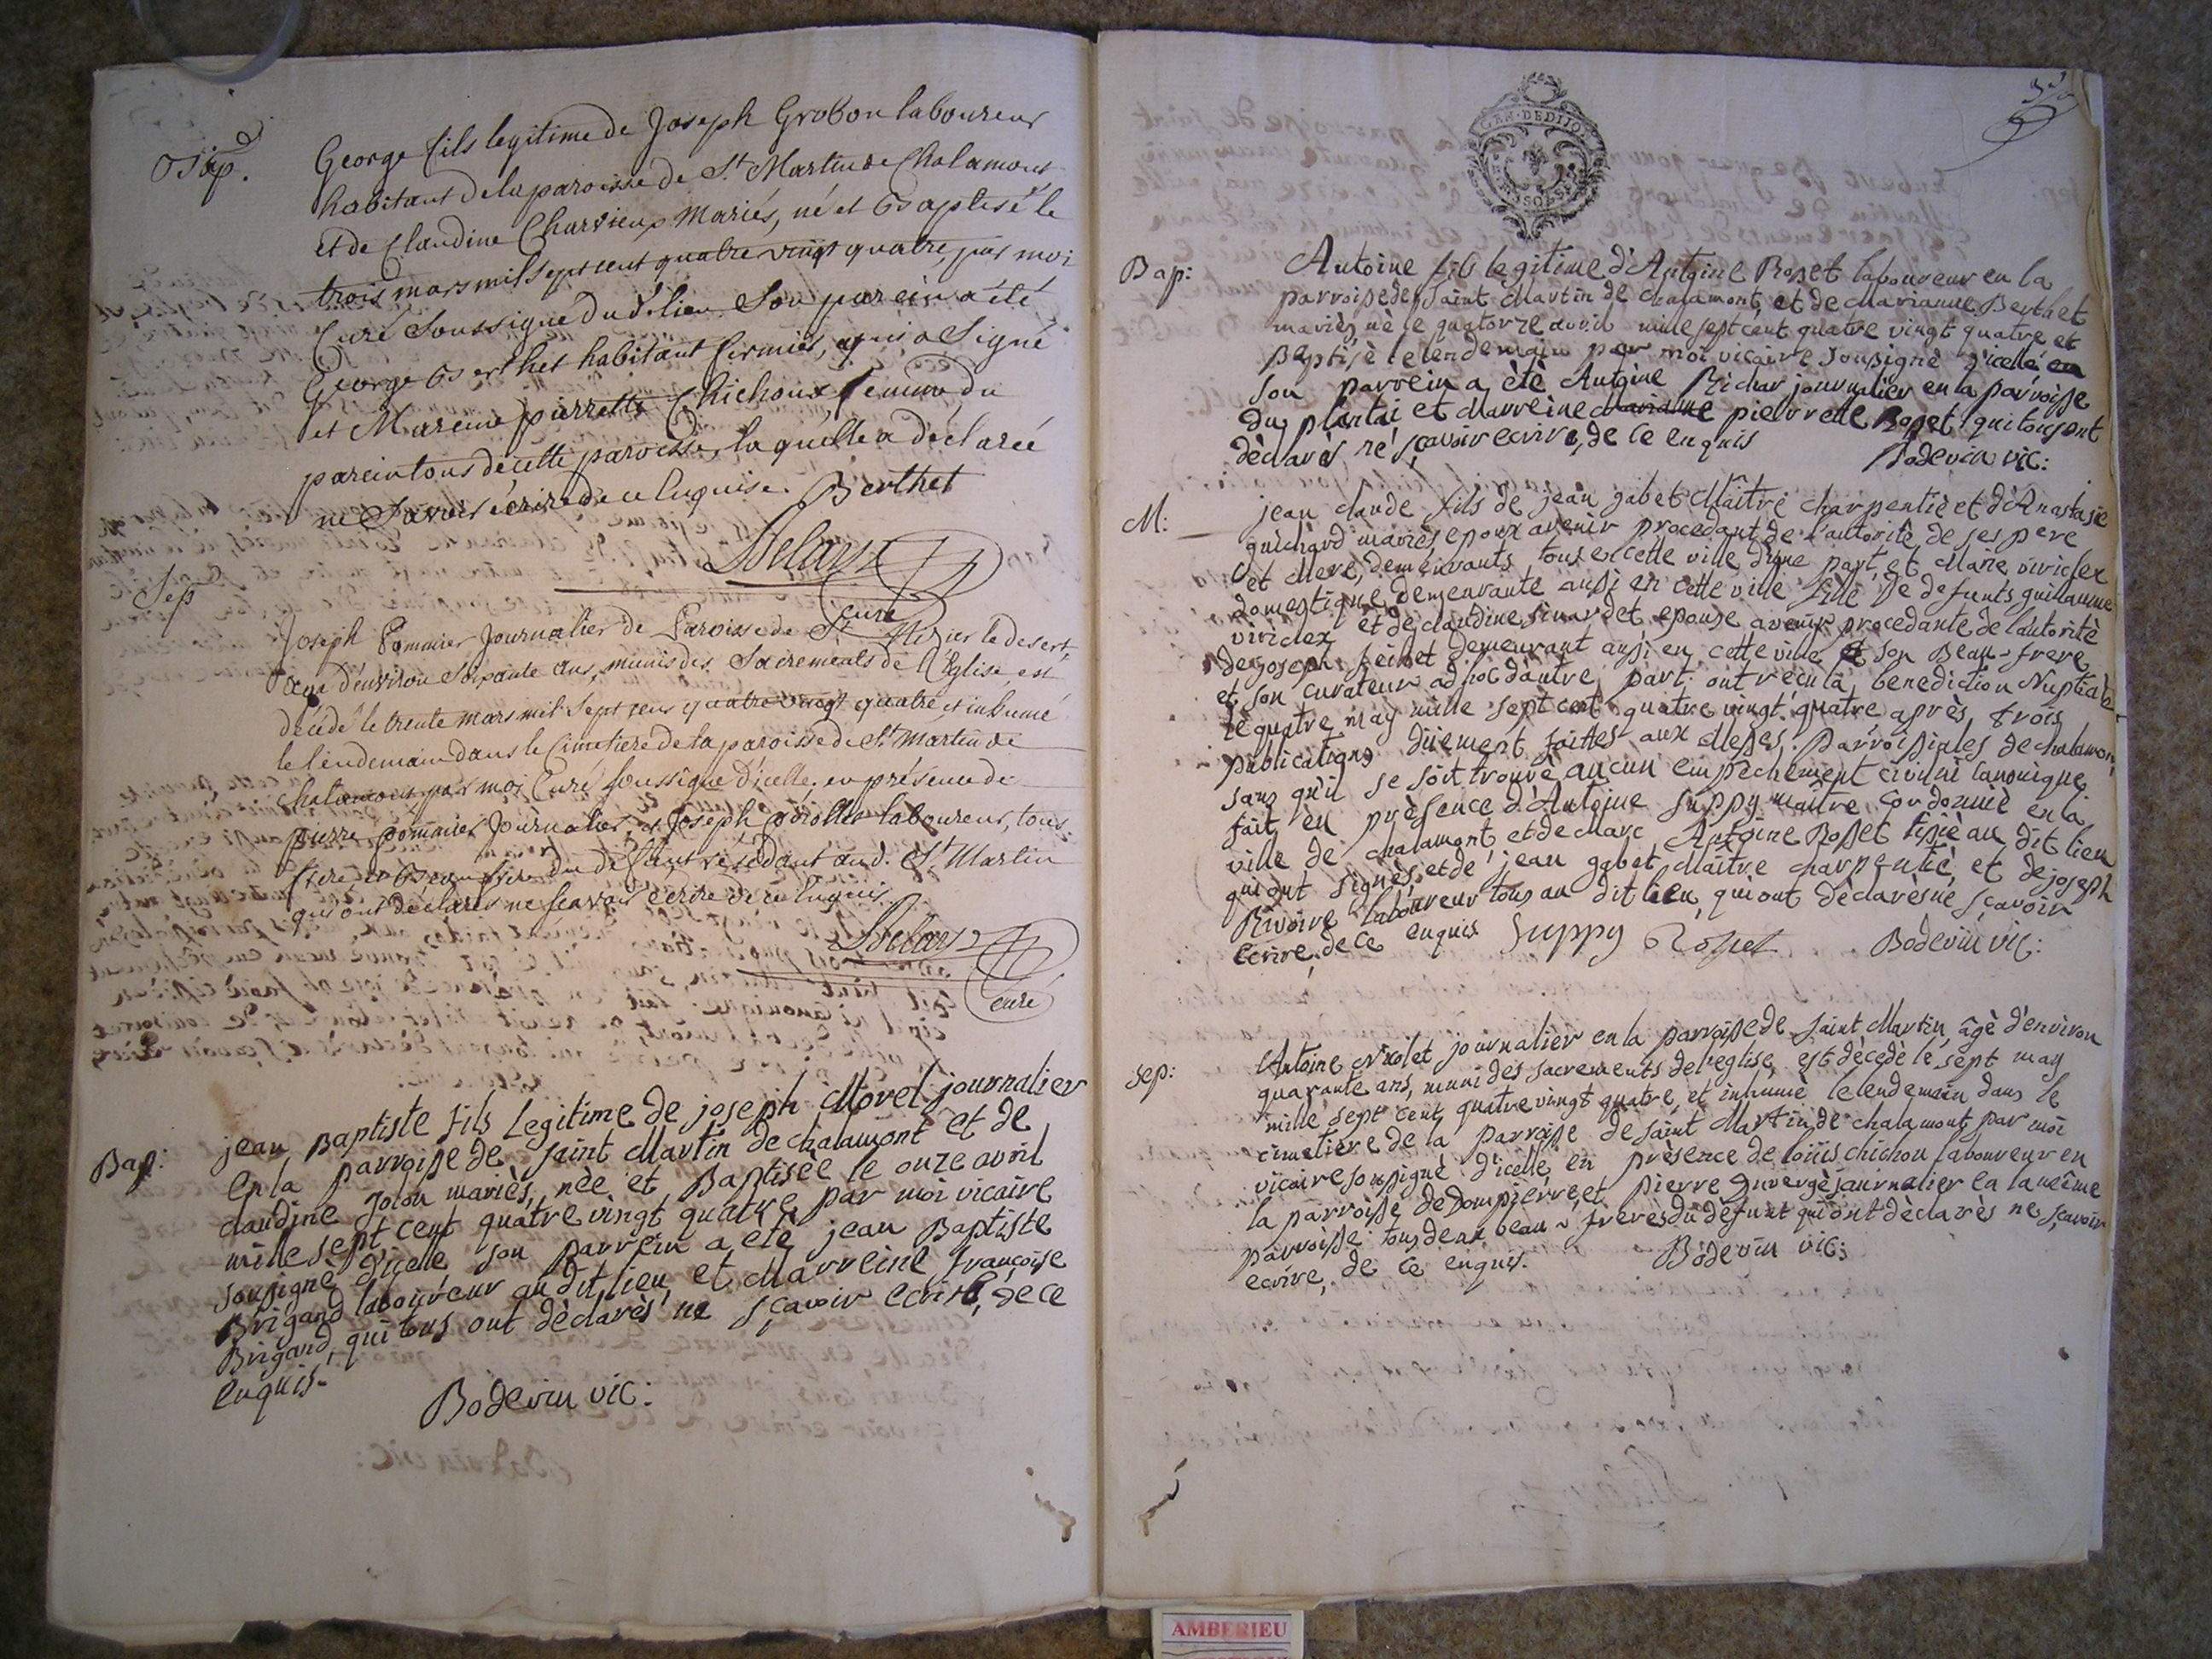 Bap.
George fils legitime de Joseph Grobon laboureur
habitant de la paroisse de St. Martin de Chalamont
et de Claudine Charvieux Mariés, né et Baptisé le
trois mars mil sept cent quatre vingt quatre, par moi
Curé Soussigné dud. lieu Son parein a été
George Berthet habitant fermier, qui a Signé
et Mareine pierrette Chichoux femme du
parein tous de cette paroisse, laquelle a déclarée
ne Savoir écrire de ce Enquise. Berthet
Delary
curé
Sep
Joseph Pommier Journalier de Paroisse de St. Nizier le desert,
agé d'environ Soixante ans, munis des Sacrements de l'Eglise est
décédé le trente mars mil Sept cent quatre vingt quatre et inhumé
le lendemain dans le Cimetiere de la paroisse de St. Martin de
chalamont par moi Curé soussigné d'icelle, en présence de
pierre pommier Journalier, et Joseph laboureur, tous
frere et Beau frere du défunt résidant aud. St. Martin
qui ont declarés ne scavoir Ecrire de ce Enquis.
Delary
curé
Bap:
jean Baptiste fils Legitime de joseph Morel journalier
en la parroisse de saint Martin de chalamont et de
claudine jolon mariès, nèe et Baptisèe le onze avril
mille sept cent quatre vingt quatre par moi vicaire
soussignè d'icelle son parrein a ete jean Baptiste
Brigand laboureur au dit lieu et Marreine françoise
Brigand, qui tous ont dèclarès ne sçavoir ecrire, de ce
enquis.
Bodevin vic:
GEN. DE DIJON
Bap:
Antoine fils legitime d'Antoine Rosset laboureur en la
parroisse de saint Martin de chalamont, et de Marianne Berthet
mariès, nè le quatorze avril mille sept cent quatre vingt quatre et
Baptisè le lendemain par moi vicaire soussignè d'icelle en
son parrein a ètè Antoine Richar journalier en la parroisse
du plantai et Marreine Marianne pierrette Rosset qui tous ont
dèclarès ne sçavoir ecrire, de ce enquis
Bodevin vic:
M:
jean claude fils de jean gabet Maître charpentiè et d'Anastasie
guichard mariès, epoux avenir procedant de l'autoritè de ses pere
et Mere, demeurants tous en cette ville d'une part, et Marie viriclex
domestique demeurante aussi en cette ville fille de defunts guillaume
viriclex et de claudine sinardet epouse avenir procedante de l'autoritè
de joseph demeurant aussi en cette ville son Beau-frere
et son curateur ad hoc d'autre part: ont recu la benediction Nuptiale
le quatre may mille sept cent quatre vingt quatre après trois
publications düement faittes aux Messes parroissiales de chalamon,
sans qu'il se soit trouvè aucun empechement civil ni canonique
fait en prèsence d'Antoine Suppy maître cordonniè en la
ville de chalamont, et de Marc Antoine Rosset tissiè au dit lieu
qui ont signès, et de jean gabet Maître charpentiè, et de joseph
Rivoire laboureur tous au dit lieu, qui ont dèclarès ne sçavoir
ecrire, de ce enquis Suppy Rosset Bodevin vic:
sep:
Antoine Niolet journalier en la parroisse de saint Martin, âgè d'environ
quarante ans, muni des sacrements de l'eglise, est dècedè le sept may
mille sept cent quatre vingt quatre, et inhumè le lendemain dans le
cimetière de la parroisse de saint Martin de chalamont par moi
vicaire soussigné d'icelle, en prèsence de loüis chichou laboureur en
la parroisse de Dompierre, et pierre journalier en la mème
parroisse tous deux beau-freres du defunt qui ont dèclarès ne sçavoir
ecrire, de ce enquis. Bodevin vic:
AMBERIEU